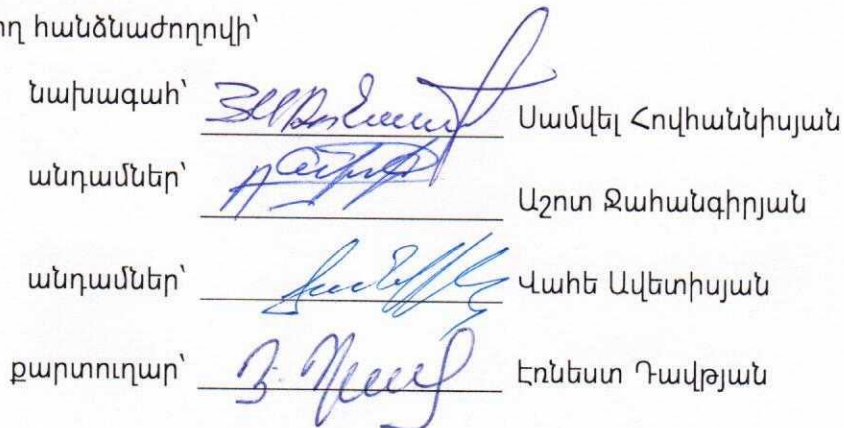 ող հանձնաժողովի՝
նախագահ՝ Սամվել Հովհաննիսյան
անդամներ՝ Աշոտ Ջահանգիրյան
անդամներ՝ Վահե Ավետիսյան
քարտուղար՝ Էռնեստ Դավթյան